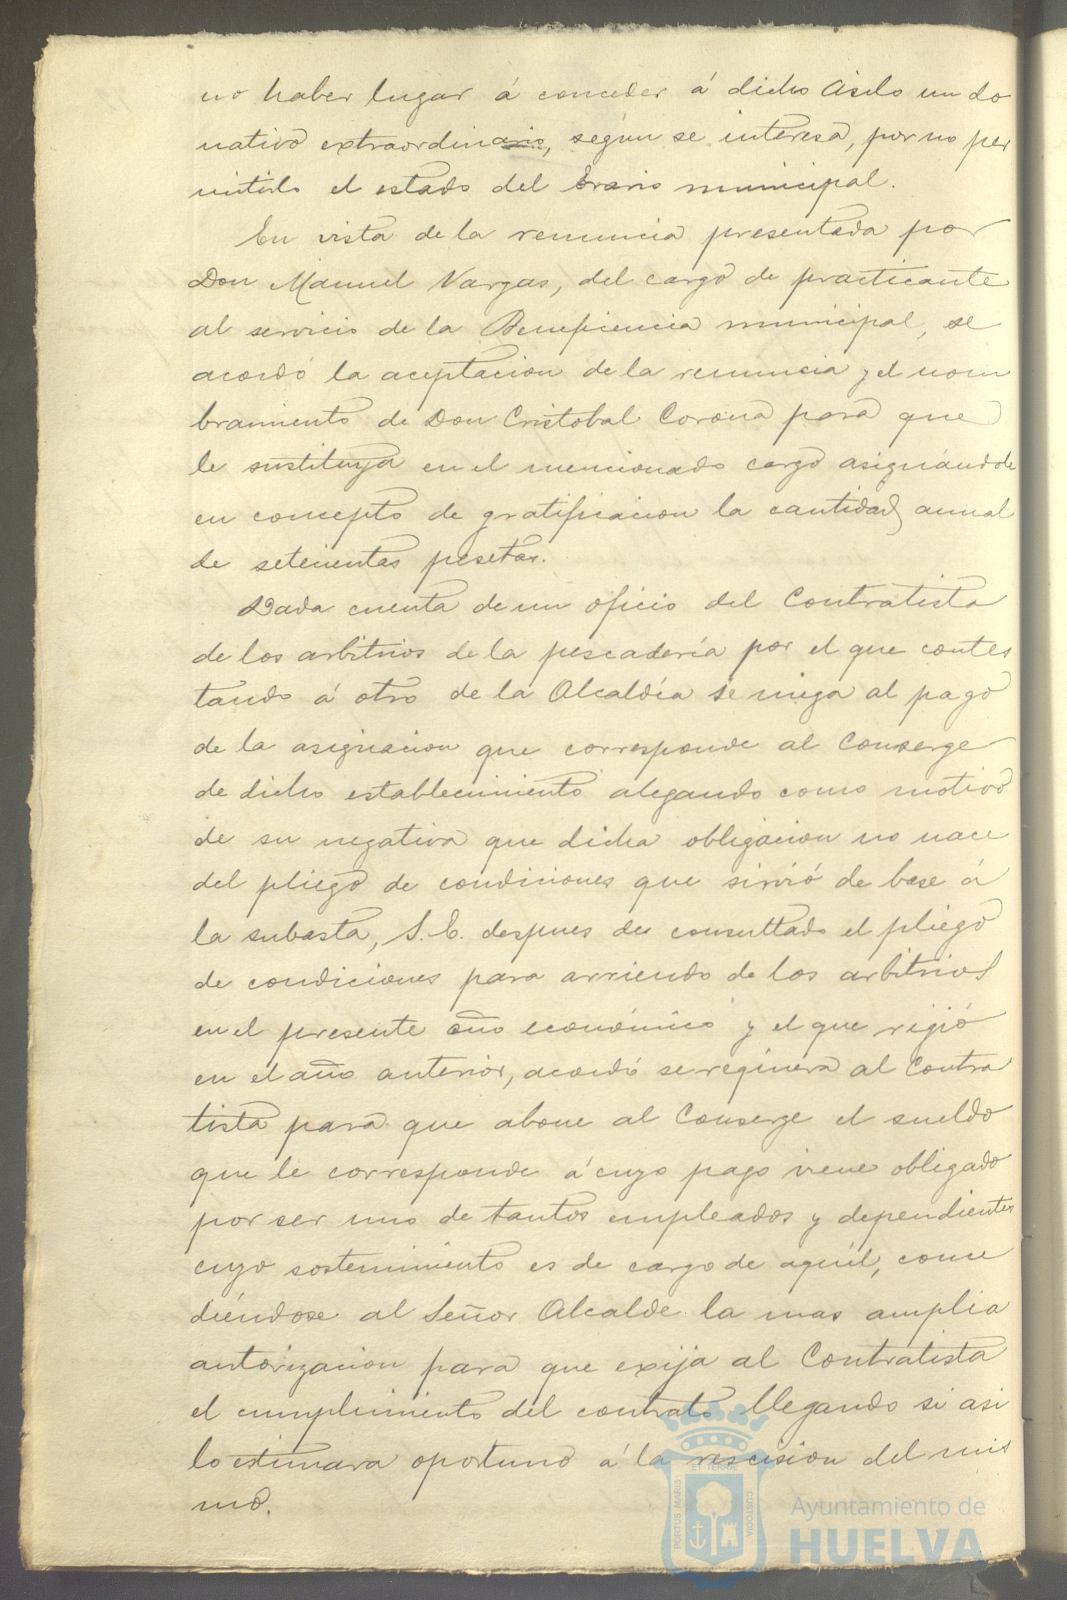 no haber lugar á conceder á dicho Asilo un do
nativo extraordinario, según se interesa, por no per
mitirlo el estado del Erario municipal.
En vista de la renuncia presentada por
Don Manuel Vargas, del cargo de practicante
al servicio de la Beneficencia municipal, se
acordó la aceptacion de la renuncia y el nom
bramiento de Don Cristobal Corona para que
le sustituya en el mencionado cargo asignándole
en concepto de gratificacion la cantidad anual
de setecientas pesetas.
Dada cuenta de un oficio del Contratista
de los arbitrios de la pescadería por el que contes
tando á otro de la Alcaldía se niega al pago
de la asignacion que corresponde al Conserge
de dicho establecimiento alegando como motivo
de su negativa que dicha obligacion no nace
del pliego de condiciones que sirvió de base á
la subasta, S. E. despues de consultado el pliego
de condiciones para arriendo de los arbitrios
en el presente año económico y el que rigió
en el año anterior, acordó se requiera al Contra
tista para que abone al Conserge el sueldo
que le corresponde á cuyo pago viene obligado
por ser uno de tantos empleados y dependientes
cuyo sostenimiento es de cargo de aquél, conce
diéndose al Señor Alcalde la mas amplia
autorizacion para que exija al Contratista
el cumplimiento del contrato llegando si asi
lo estimara oportuno á la rescision del mis
mo.
PORTUS MARIS ET TERRÆ CUSTODIA
Ayuntamiento de
HUELVA